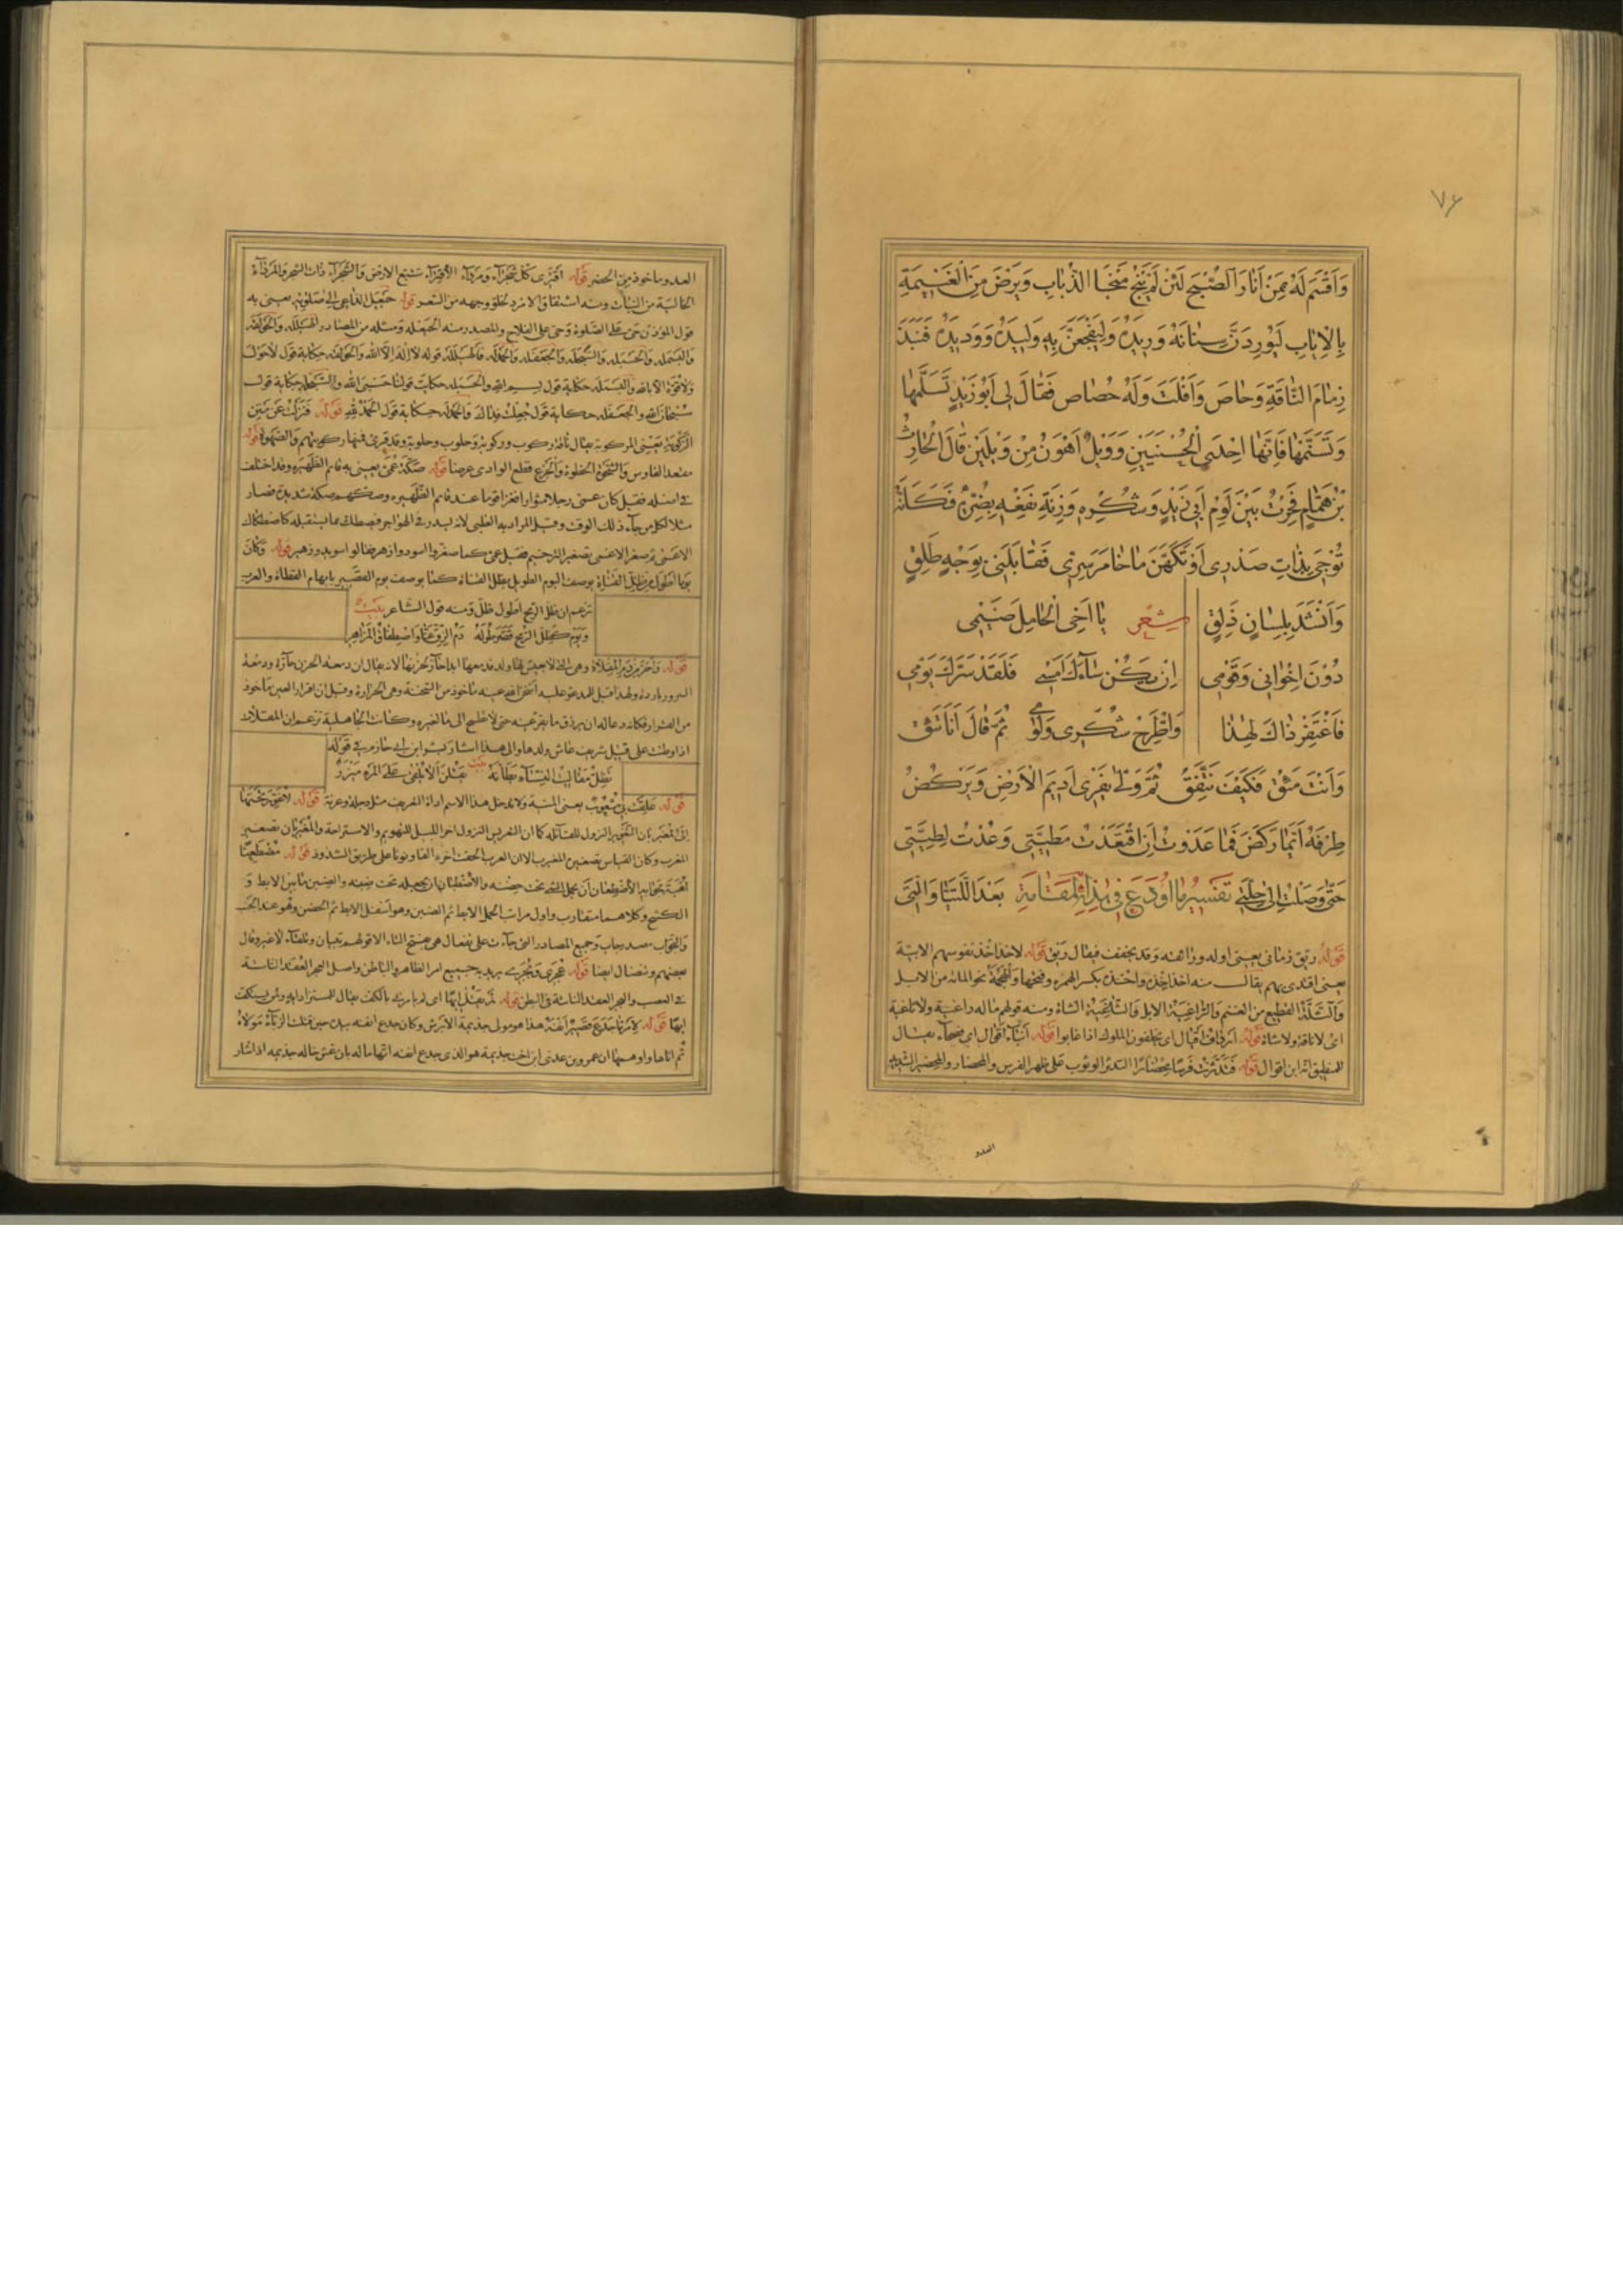 ٧٦
وَاَقْسَمَ لَهُ بِمَنْ اَنَارَ الصُّبْحَ لَئِنْ لَمْ يَنْجُ مَنْجَا الذُّبَابِ وَيَرْضَ مِنَ الْغَنِيمَةِ
بِالْاِيَابِ لَيُورِدَنَّ سِنَانَهُ وَرِيدَهُ وَلَيَفْجَعَنَّ بِهِ وَلِيدَهُ وَوَدِيدَهُ فَنَبَذَ
زِمَامَ النَّاقَةِ وَحَاصَ وَاَفْلَتَ وَلَهُ حُصَاصٌ فَقَالَ لِى اَبُوزَيْدٍ تَسَلَّمْهَا
وَتَسَنَّمْهَا فَاِنَّهَا اِحْدَى الْحُسْنَيَيْنِ وَوَيْلٌ اَهْوَنُ مِنْ وَيْلَيْنِ قَالَ الْحَارِثُ
بْنُ هَمَّامٍ فَحِرْتُ بَيْنَ لَوْمِ اَبِى زَيْدٍ وَشُكْرِهِ وَزِنَةِ نَفْعِهِ بِضُرِّهِ فَكَاَنَّهُ
نُوجِىَ بِذَاتِ صَدْرِى اَوْ تَكَهَّنَ مَا خَامَرَ سِرِّى فَقَابَلَنِى بِوَجْهٍ طَلِيقٍ
وَاَنْشَدَ بِلِسَانٍ ذَلِيقٍ شِعْر يَا اَخِى الْحَامِلَ ضَيْمِى
دُونَ اِخْوَانِى وَقَوْمِى اِنْ يَكُنْ سَاءَكَ اَمْسِى فَلَقَدْ سَرَّكَ يَوْمِى
فَاغْتَفِرْ ذَاكَ لِهٰذَا وَاطَّرِحْ شُكْرِى وَلَوْمِى ثُمَّ قَالَ اَنَا تَئِقٌ
وَاَنْتَ مَئِقٌ فَكَيْفَ نَتَّفِقُ ثُمَّ وَلّٰى يَفْرِى اَدِيمَ الْاَرْضِ وَيَرْكُضُ
طِرْفَهُ اَيَّمَا رَكْضٍ فَمَا عَدَوْتُ اَنِ اقْتَعَدْتُ مَطِيَّتِى وَعُدْتُ لِطِيَّتِى
حَتّٰى وَصَلْتُ اِلٰى حِلَّتِى بَعْدَ اللَّتَيَّا وَالَّتِى تَفْسِيرُ مَا اُودِعَ فِى هٰذِهِ الْمَقَامَةِ
قوله ريق زمانى يعنى اوله ورائقه وقد يخفف فيقال ريق قوله لاخذ اخذ نفوسهم الابية
يعنى اقتدى بهم يقال منه اخذ اخذه واخذه بكسر الهمزه وفتحها والهجمة نحو المائة من الابل
والثلة القطيع من الغنم والراغية الابل والثاغية الشاة ومنه قولهم ماله راغية ولا ثاغية
اى لا ناقة ولا شاة قوله ارداف اقيال اى يخلفون الملوك اذا غابوا قوله ابناء اقوال اى فصحاء يقال
للمنطيق انه ابن اقوال قوله فتدثرت فرسا محضارا التدثر الوثوب على ظهر الفرس والمحضار والمحضير الشديد
العدو
العدو ماخوذ من الحضر قوله اقترى كل شجراء ومرداء الاقتراء تتبع الارض والشجراء ذات الشجر والمرداء
الخالية من النبات ومنه اشتقاق الامرد لخلو وجهه من الشعر قوله حيعل الداعى الى صلوته يعنى به
قول المؤذن حى على الصلوة وحى على الفلاح والمصدر منه الحيعله ومثله من المصادر الهيلله والحولقه
والبسمله والحسبله والسبحله والجعفله والحمدله فالهيلله قوله لا اله الا الله والحولقه حكاية قول لا حول
ولا قوة الا بالله والبسمله حكاية قول بسم الله والحسبله حكاية قولنا حسبى الله والسبحله حكاية قول
سبحان الله والجعفله حكاية قول جعلت فداك والحمدله حكاية قول الحمد لله قوله فنزلت عن متن
الركوبة يعنى المركوبة يقال ناقة ركوب وركوبة وحلوب وحلوبة وقد قرى فمنها ركوبتهم والصهوة
مقعد الفارس والشحوة الخطوة والجزع قطع الوادى عرضا قوله صكة عمى يعنى به قائم الظهيره وقد اختلف
فى اصله فقيل كان عمى رجلا مغوارا فغزا قوما عند قائم الظهيره وصكهم صكة شديدة فصار
مثلا لكل من جاء ذلك الوقت وقيل المراد به الظبى لانه يسدر فى الهواجر فيصطك بما يستقبله كاصطكاك
الاعمى ثم صغر الاعمى تصغير الترخيم فقيل عمى كما صغروا اسود وازهر فقالوا سويد وزهير قوله وكان
يوما اطول من ظل القناة يوصف اليوم الطويل بظل القناة كما يوصف يوم القصير بابهام القطاة والعرب
تزعم ان ظل الرمح اطول ظل ومنه قول الشاعر بيت
ويوم كظل الرمح قصر طوله دم الزق عنا واصطفاق المزاهر
قوله واحر من دمع المقلاة وهى التى لا يعيش لها ولد فدمعها ابدا حار لحزنها لانه يقال ان دمعة الحزن حارة ودمعة
السرور باردة ولهذا قيل للمدعو عليه اسخن الله عينه ماخوذ من السخنة وهى الحرارة وقيل ان اقرار العين ماخوذ
من القرار فكانه دعا له ان يرزق ما يقر عينه حتى لا تطمح الى ما لغيره وكانت الجاهلية تزعم ان المقلات
اذا وطئت على قتيل شريف عاش ولدها والى هذا اشار بشر ابن ابى حازم فى قوله
تظل مقاليت النساء يطأنه بيت يقلن الا يلقى على المرء مئزر
قوله علقت بى شعوب يعنى المنية ولا يدخل هذا الاسم اداة التعريف مثل دجلة وعرفة قوله
المغرب وكان القياس تصغير المغرب الا ان العرب الحقت اخره الفا ونونا على طريق الشذوذ قوله مضطغنا
الكشح وكلاهما متقارب واول مراتب الحمل الابط ثم الضبن وهو اسفل الابط ثم الحضن وهو عند الجنب
قوله عجرى وبجرى يريد به جميع امر الظاهر والباطن واصل العجر العقد الناتئة
فى العصب والبجر العقد الناتئة فى البطن
ايها قوله لامر ما جدع قصير انفه هذا هو مولى جذيمة الابرش وكان جدع انفه بيده حين قتلت الزباء مولاه
ثم اتاها واوهمها ان عمرو بن عدى ابن اخت جذيمة هو الذى جدع انفه اتهاما له بان غش خاله جذيمه اذ اشار